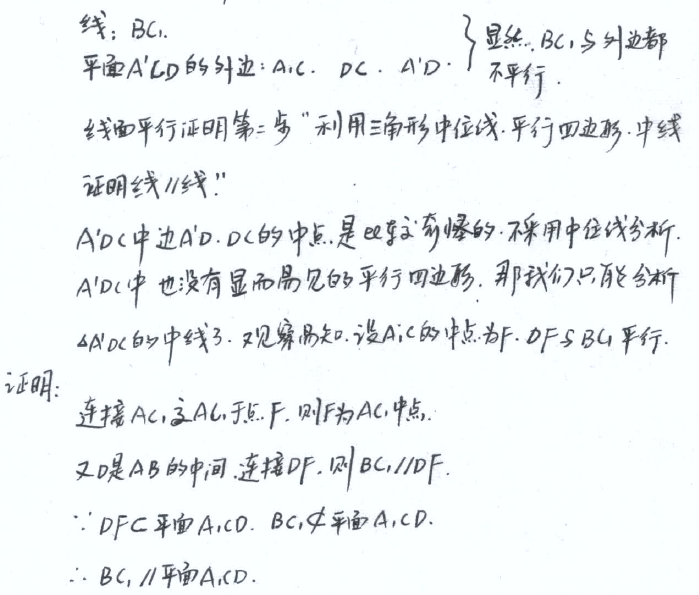 线：BC₁.
平面A'CD的外边：A₁C. DC. A'D. } 显然. BC₁与外边都
不平行.
线面平行证明第二步"利用三角形中位线.平行四边形.中线
证明线//线."
A'DC中边A'D.DC的中点.是 奇怪的.不采用中位线分析.
A'DC中 也没有显而易见的平行四边形. 那我们只能分析
△A'DC的中线了. 观察易知.设A₁C的中点为F. DF与BC₁平行.
证明:
连接AC₁交A₁C于点F. 则F为AC₁中点.
又D是AB的中间.连接DF.则BC₁//DF.
∵ DF⊂平面A₁CD. BC₁⊄平面A₁CD.
∴ BC₁//平面A₁CD.